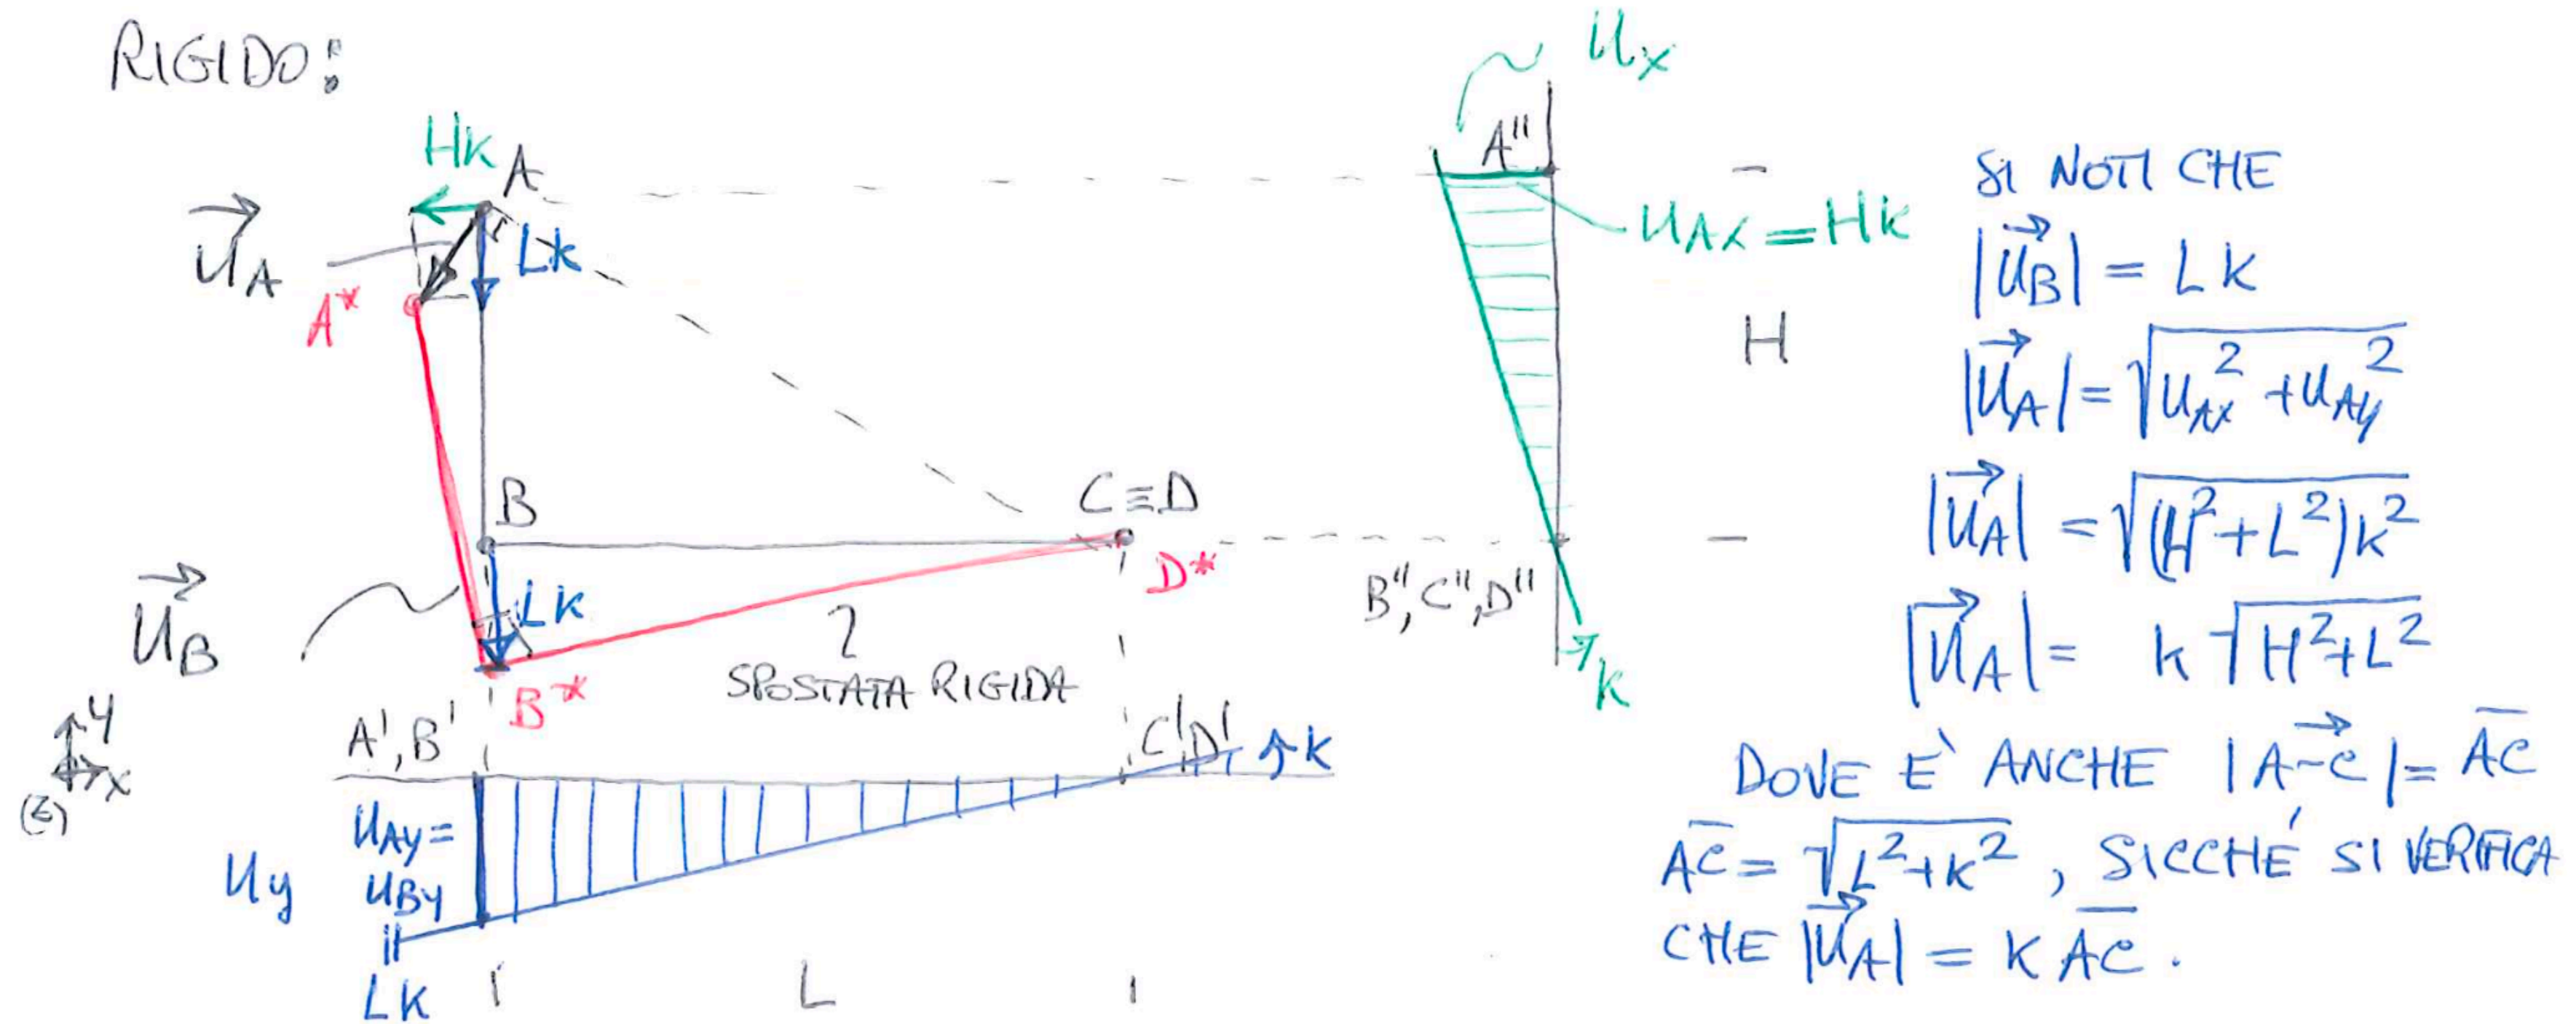 RIGIDO:
Hk
A
Lk
→
u_A
A*
B
C≡D
D*
Lk
→
u_B
B*
SPOSTATA RIGIDA
y
x
(z)
A', B'
C', D'
k
u_Ay =
u_By
=
Lk
u_y
L
u_x
A''
u_Ax = Hk
H
B'', C'', D''
k
SI NOTI CHE
|u_B| = L k
|u_A| = √(u_Ax² + u_Ay²)
|u_A| = √((H² + L²) k²)
|u_A| = k √(H² + L²)
DOVE E` ANCHE |A-C| = AC
AC = √(L² + k²), SICCHÉ SI VERIFICA
CHE |u_A| = K AC.